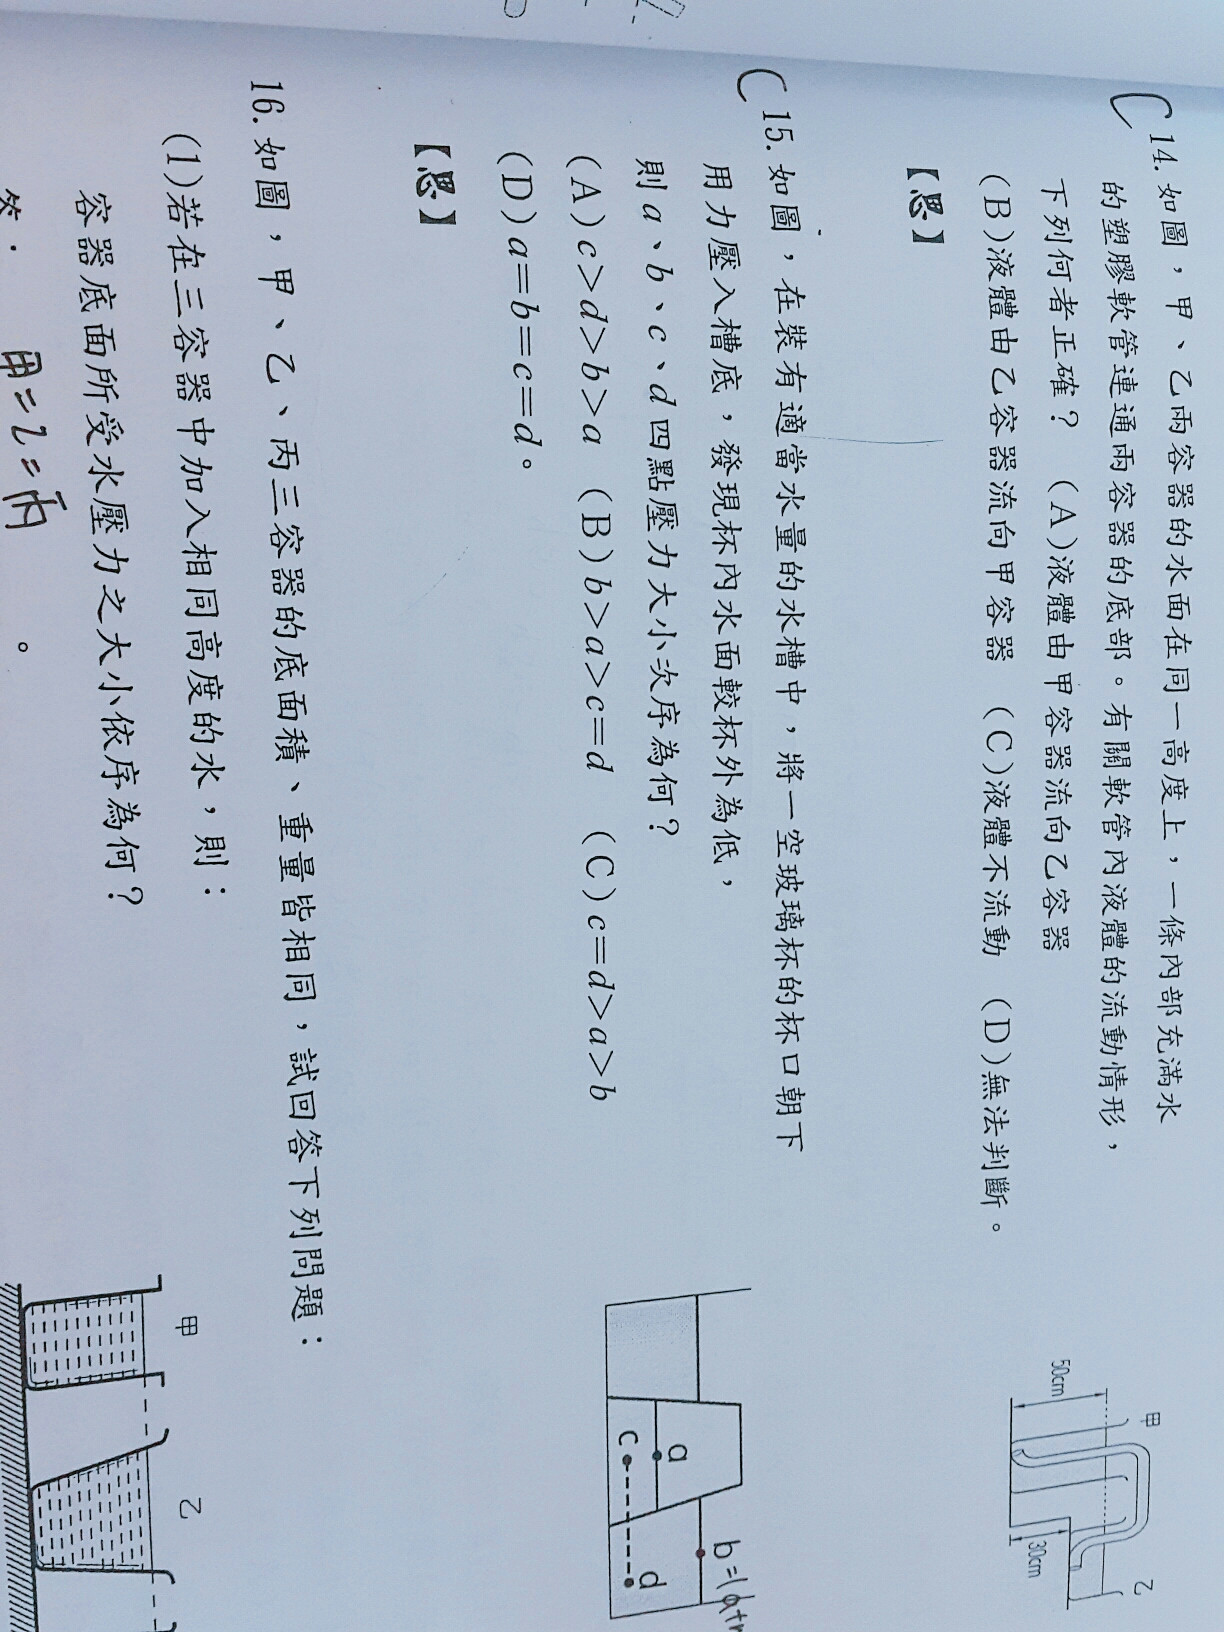 C 14. 如圖，甲、乙兩容器的水面在同一高度上，一條內部充滿水
的塑膠軟管連通兩容器的底部。有關軟管內液體的流動情形，
下列何者正確？ (A)液體由甲容器流向乙容器
(B)液體由乙容器流向甲容器 (C)液體不流動 (D)無法判斷。
【思】
50cm
甲
30cm
乙
C 15. 如圖，在裝有適當水量的水槽中，將一空玻璃杯的杯口朝下
用力壓入槽底，發現杯內水面較杯外為低，
則a、b、c、d四點壓力大小次序為何？
(A)c>d>b>a (B)b>a>c=d (C)c=d>a>b
(D)a=b=c=d。
【思】
a
b=1atm
c
d
16. 如圖，甲、乙、丙三容器的底面積、重量皆相同，試回答下列問題：
(1)若在三容器中加入相同高度的水，則：
容器底面所受水壓力之大小依序為何？
答： 甲=乙=丙 。
甲
乙